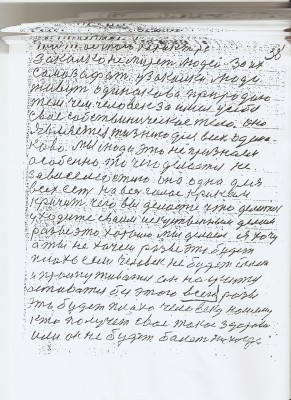 38
закалке не может людей за их
самозащит. у закалки люди
живут одинаково природою
тем чем человек занимает у себя
свое собственническое тело. оно
является жизнию для всех одина-
ково. мы люди это не признали
особенно то чего делается не
зависимостию оно одна для
всех есть на весь голос криком
кричит чего вы делаете что делаете
уходите своим искусственным делом
разве это хорошо мы делаем я хочу
а ты не хочешь разве это будет
плохо если человек не будет болеть
и простуживаться он научится
оставаться без этого всего разве
это будет плохо человеку нашему
кто получит свое такое здоровье
или он не будет болеть никогда